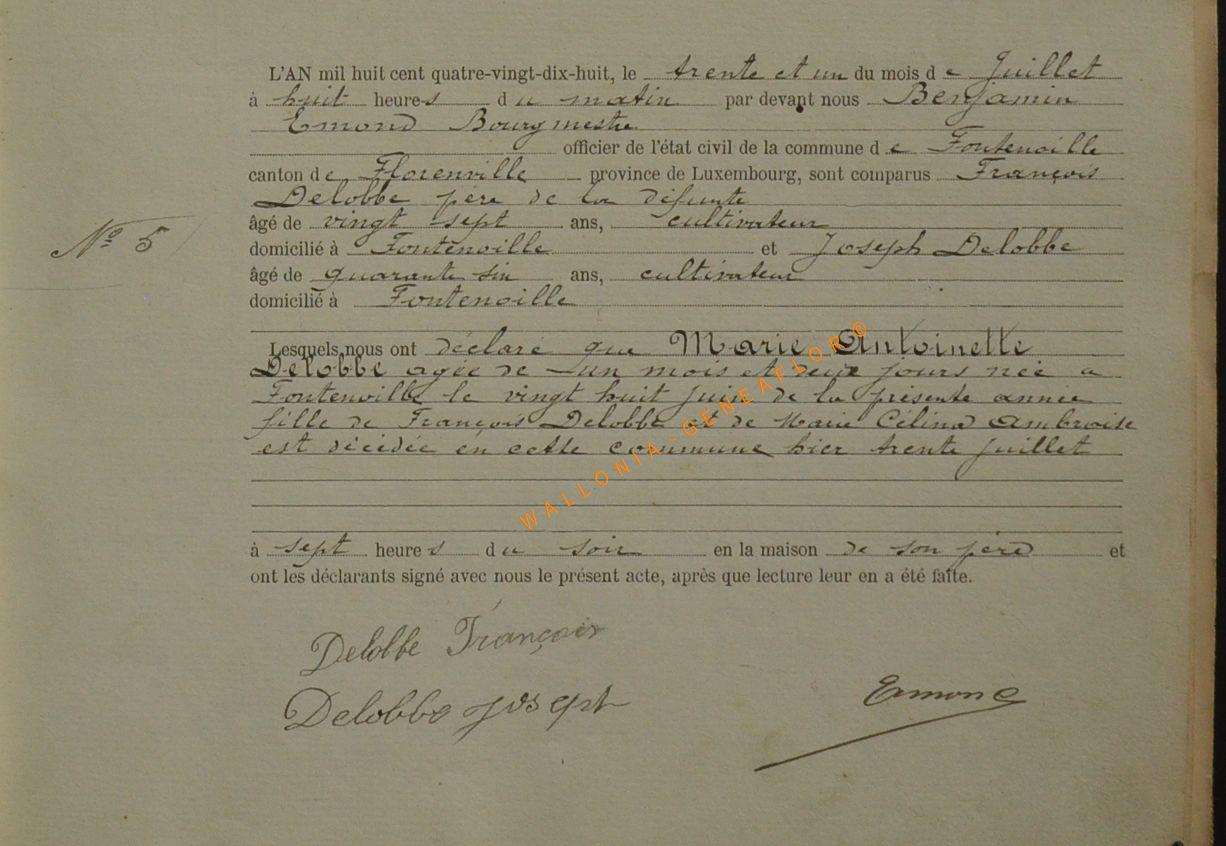 L'AN mil huit cent quatre-vingt-dix-huit, le trente et un du mois de Juillet
à huit heures du matin par devant nous Benjamin
Emond Bourgmestre
officier de l'état civil de la commune de Fontenoille
canton de Florenville province de Luxembourg, sont comparus François
Delobbe père de la défunte
âgé de vingt sept ans, cultivateur
N° 5
domicilié à Fontenoille et Joseph Delobbe
âgé de quarante six ans, cultivateur
domicilié à Fontenoille
Lesquels nous ont déclaré que Marie Antoinette
Delobbe agée de un mois et deux jours née à
Fontenoille le vingt huit juin de la présente année
fille de François Delobbe et de Marie Célina Ambroise
est décédée en cette commune hier trente juillet
WALLONIA-GENEAFLOR©
à sept heures du soir en la maison de son père et
ont les déclarants signé avec nous le présent acte, après que lecture leur en a été faite.
Delobbe François
Delobbe Joseph
Emond